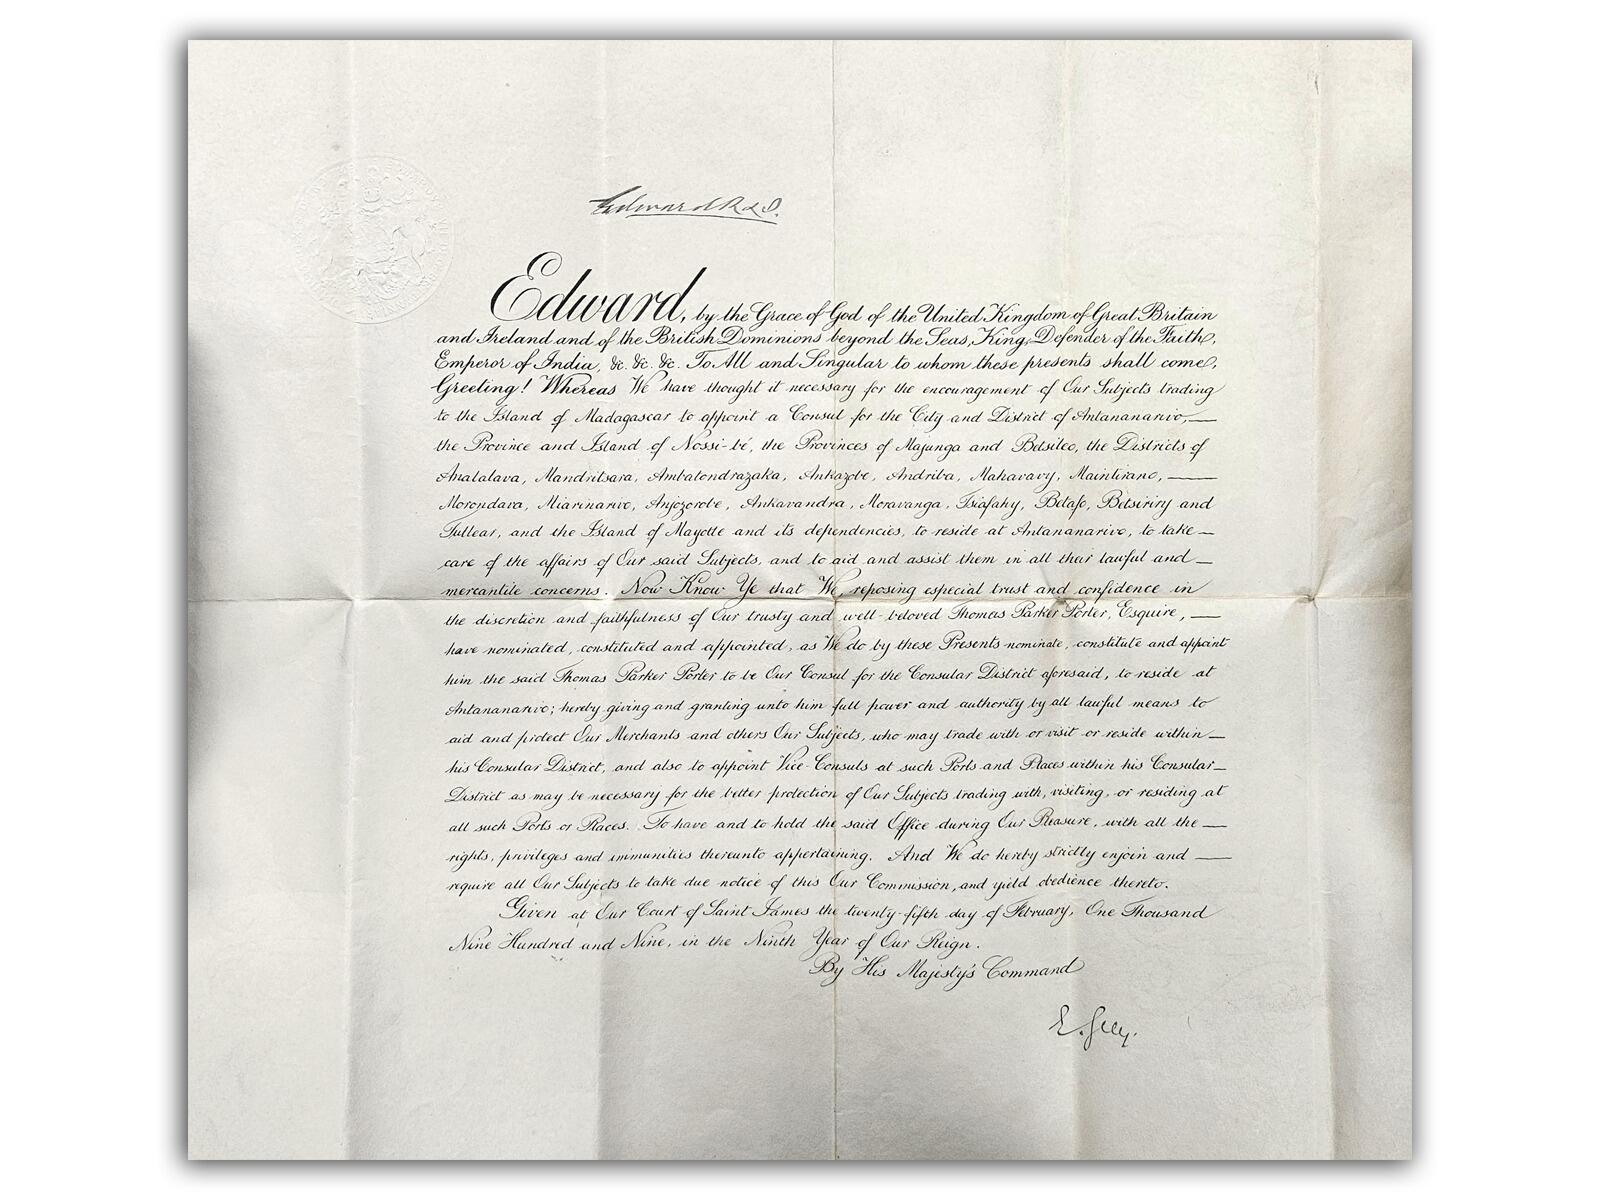 Edward R & I.
Edward, by the Grace of God of the United Kingdom of Great Britain
and Ireland and of the British Dominions beyond the Seas, King, Defender of the Faith,
Emperor of India, &c. &c. &c. To All and Singular to whom these presents shall come,
Greeting! Whereas We have thought it necessary for the encouragement of Our Subjects trading
to the Island of Madagascar to appoint a Consul for the City and District of Antananarivo,—
the Province and Island of Nossi-bé, the Provinces of Majunga and Betsileo, the Districts of
Analalava, Mandritsara, Ambatondrazaka, Ankazobe, Andriba, Mahavavy, Maintirano,—
Morondava, Miarinarivo, Anjozorobe, Ankavandra, Moravanga, Tsiafahy, Betafo, Betsiriry and
Tullear, and the Island of Mayotte and its dependencies, to reside at Antananarivo, to take—
care of the affairs of Our said Subjects, and to aid and assist them in all their lawful and—
mercantile concerns. Now Know Ye that We, reposing especial trust and confidence in
the discretion and faithfulness of Our trusty and well-beloved Thomas Parker Porter, Esquire,—
have nominated, constituted and appointed, as We do by these Presents nominate, constitute and appoint
him the said Thomas Parker Porter to be Our Consul for the Consular District aforesaid, to reside at
Antananarivo; hereby giving and granting unto him full power and authority by all lawful means to
aid and protect Our Merchants and others Our Subjects, who may trade with or visit or reside within—
his Consular District, and also to appoint Vice-Consuls at such Ports and Places within his Consular—
District as may be necessary for the better protection of Our Subjects trading with, visiting, or residing at
all such Ports or Places. To have and to hold the said Office during Our Pleasure, with all the—
rights, privileges and immunities thereunto appertaining. And We do hereby strictly enjoin and—
require all Our Subjects to take due notice of this Our Commission, and yield obedience thereto.
Given at Our Court of Saint James the twenty-fifth day of February, One Thousand
Nine Hundred and Nine, in the Ninth Year of Our Reign.
By His Majesty's Command
E. Grey.